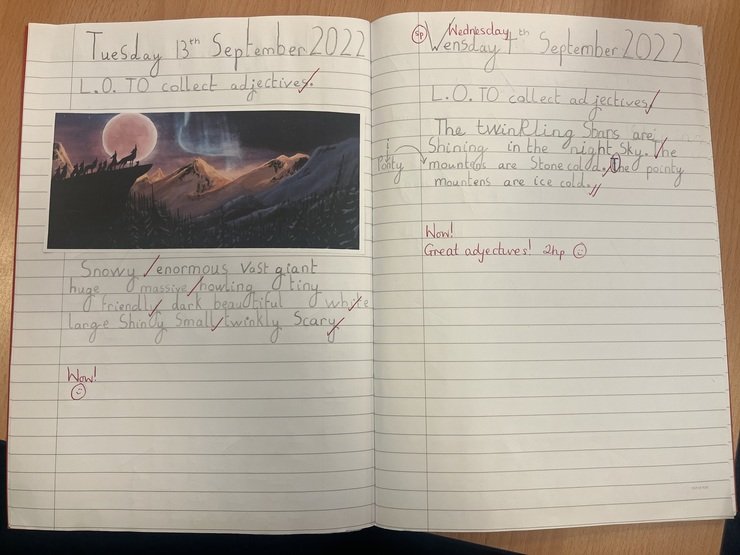 Tuesday 13th September 2022
L.O. TO collect adjectives.
Snowy enormous Vast giant
huge massive howling tiny
friendly dark beautiful white
large Shindy Small twinkly Scary
Wow!
sp Wednesday
Wensday th September 2022
L.O. TO collect adjectives
The twinkling Stars are
Shining in the night Sky. The
Pointy mountens are Stone cold. The pointy
mountens are ice cold.
Wow!
Great adjectives! 2hp